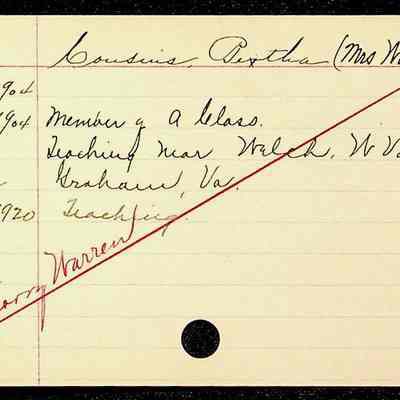 Cousins, Bertha (Mrs Wa
904
904 Member of A Class.
Teaching near Welch, W Va
Graham, Va.
1920 Teaching.
Warren